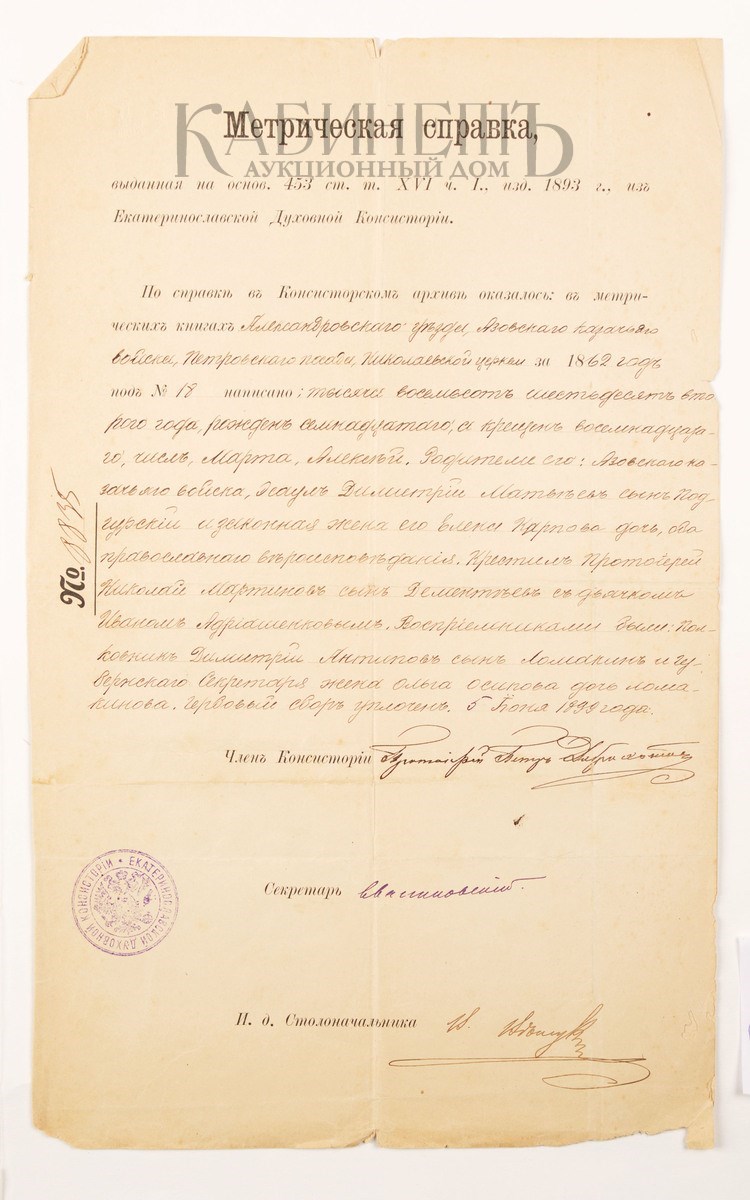 КАБИНЕТЪ
АУКЦИОННЫЙ ДОМ
Метрическая справка,
выданная на основ. 453 ст. т. XVI ч. I., изд. 1893 г., изъ
Екатеринославской Духовной Консисторіи.
По справкѣ въ Консисторскомъ архивѣ оказалось: въ метри-
ческихъ книгахъ Александровскаго уѣзда, Азовскаго казачьяго
войска, Петровскаго посада, Николаевской церкви за 1862 годъ
подъ № 18 написано: тысяча восемьсотъ шестьдесятъ вто
рого года, рожденъ семнадцатаго, а крещенъ восемнадцата-
го, числъ, Марта, Алексѣй. Родители его: Азовскаго ка-
зачьяго войска, Есаулъ Димитрій Матвѣевъ сынъ Под-
гурскій и законная жена его Елена Карпова дочь, оба
православнаго вѣроисповѣданія. Крестилъ Протоіерей
Николай Мартиновъ сынъ Дементьевъ съ дьячкомъ
Иваномъ Адріашенковымъ. Воспріемниками были: Пол-
ковникъ Димитрій Антиповъ сынъ Ломакинъ и Гу-
бернскаго Секретаря жена Ольга Осипова дочь Лома-
кинова. Гербовый сборъ уплоченъ. 5 Іюня 1899 года.
№ 8835
Членъ Консисторіи Протоіерей Петръ
Секретарь
ЕКАТЕРИНОСЛАВСКОЙ ДУХОВНОЙ КОНСИСТОРІИ
И. д. Столоначальника